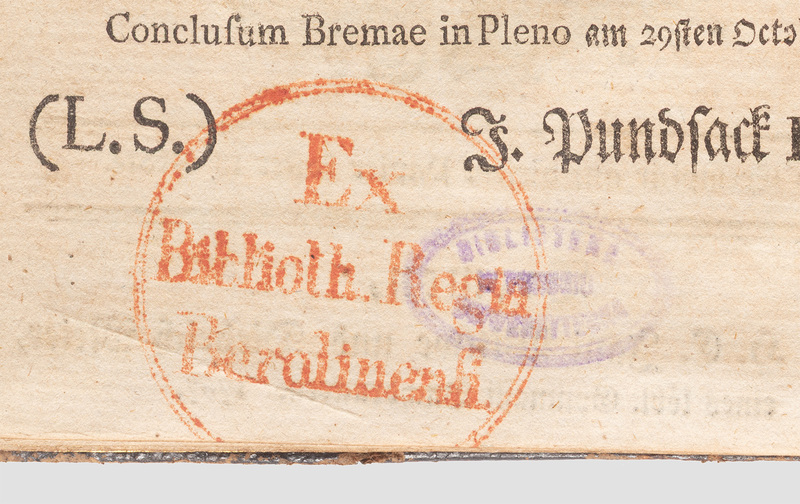 Concluſum Bremae in Pleno am 29ſten Octo
(L. S.)
J. Pundſack
Ex
Biblioth. Regia
Berolinenſi.